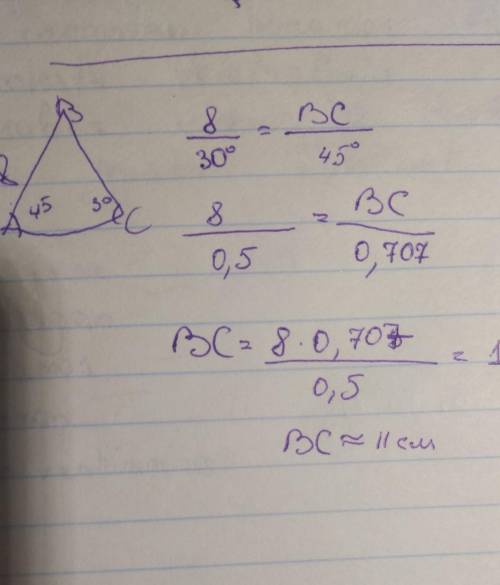 B
8
A 45 30 C
8/30° = BC/45°
8/0,5 = BC/0,707
BC = 8·0,707/0,5 = 1
BC ≈ 11 см